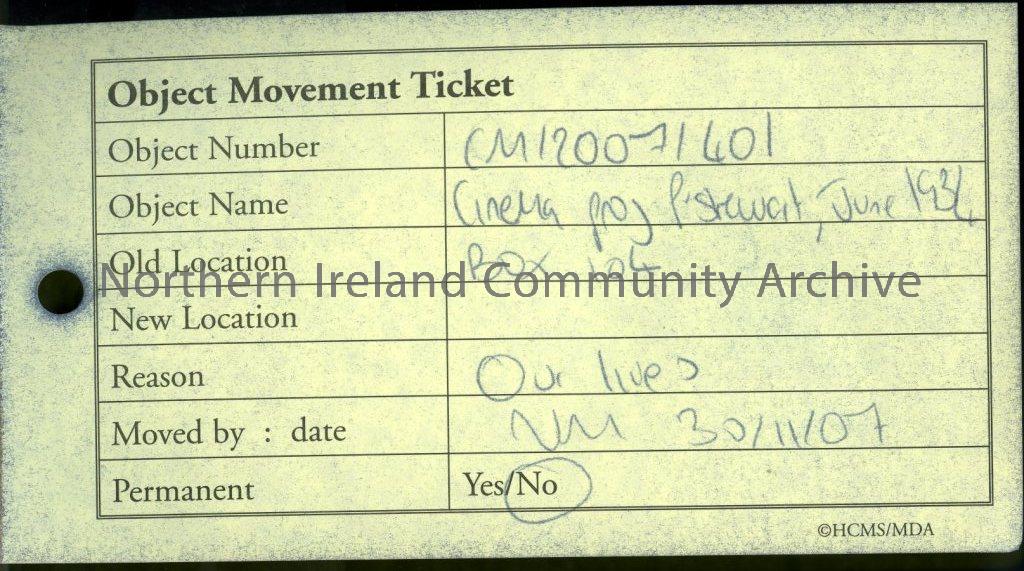 Object Movement Ticket
Object Number CM/2007/401
Object Name Cinema proj P. Stewart, June 1934
Old Location Box 104
Northern Ireland Community Archive
New Location
Reason Our lives
Moved by : date NM 30/11/07
Permanent Yes/No
©HCMS/MDA